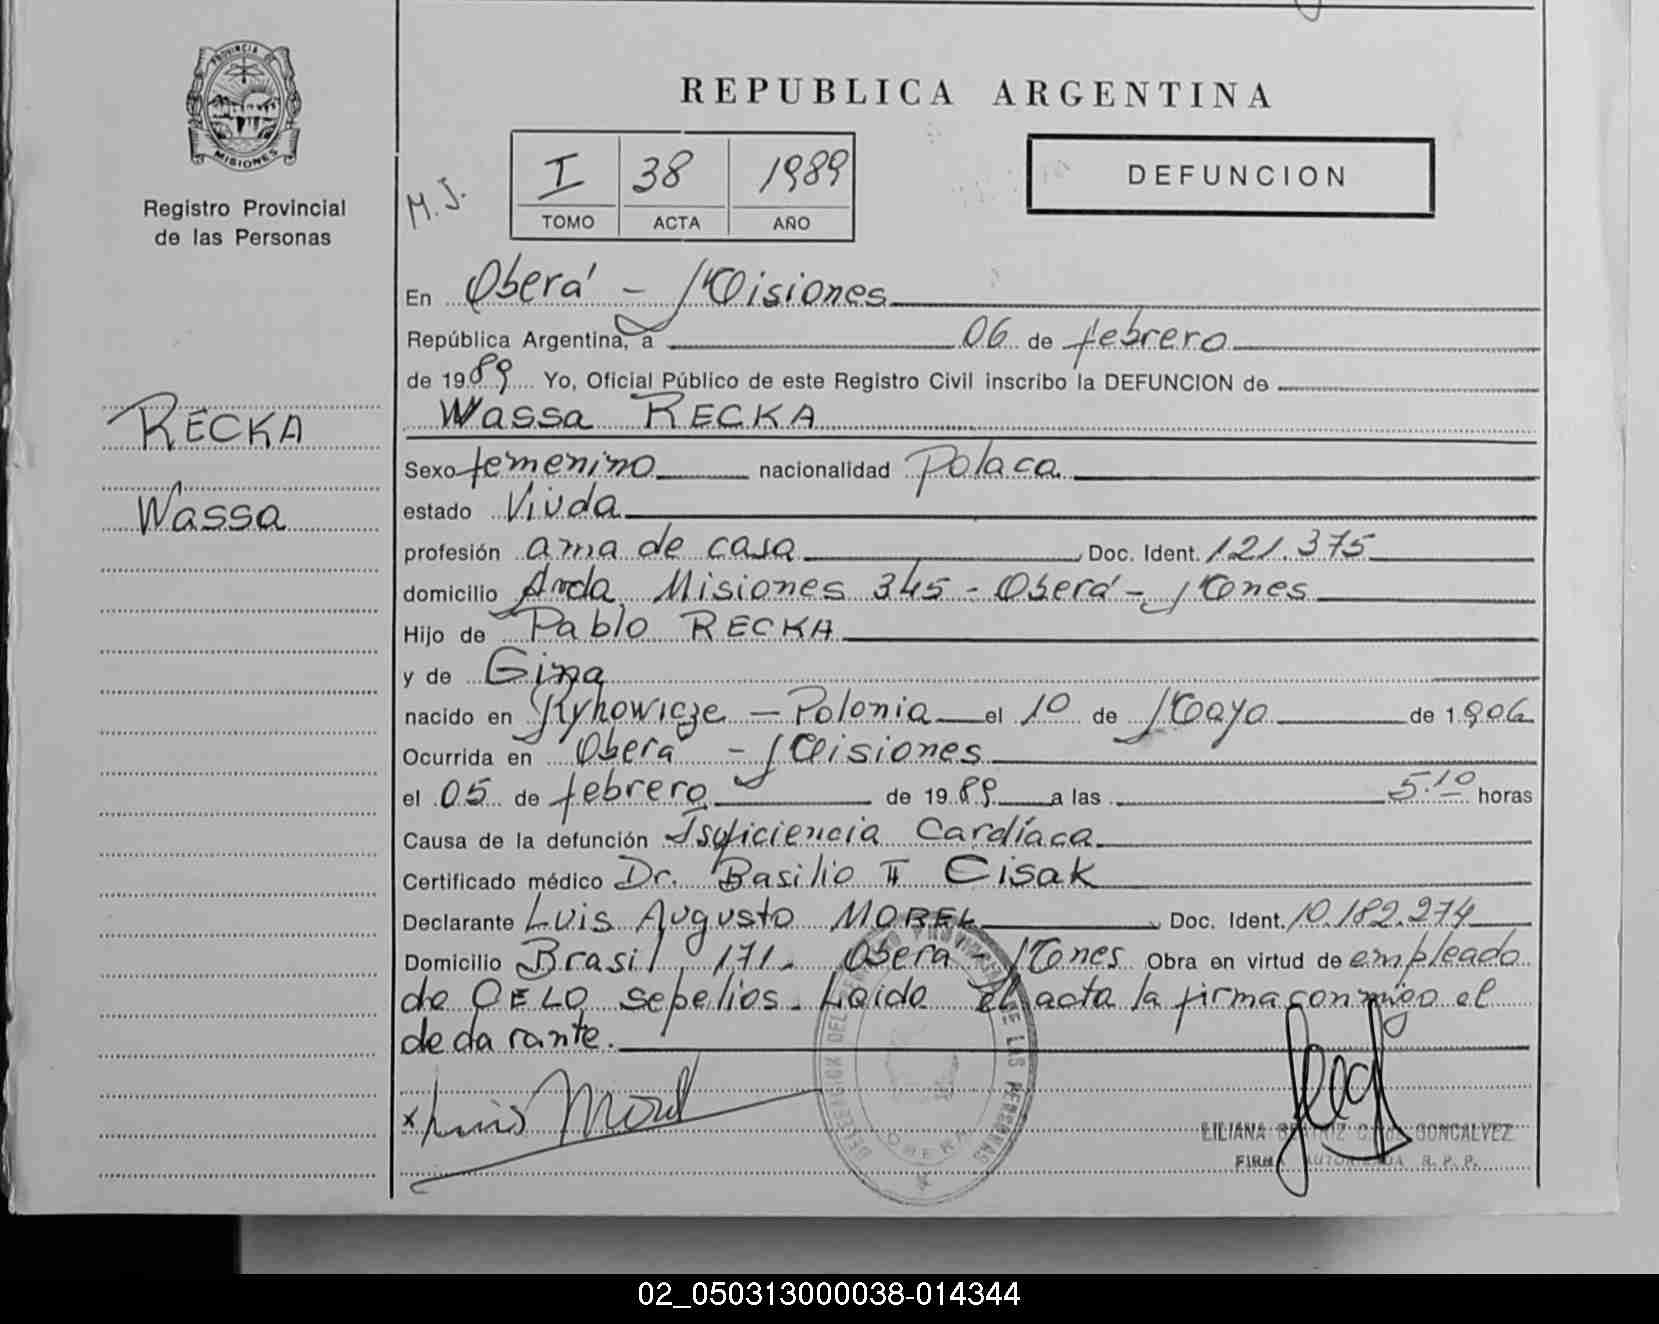 PROVINCIA DE
MISIONES
Registro Provincial
de las Personas
RECKA
Wassa
REPUBLICA ARGENTINA
M.J.
I 38 1989
TOMO ACTA AÑO
DEFUNCION
En Oberá - Misiones
República Argentina, a 06 de febrero
de 1989 Yo, Oficial Público de este Registro Civil inscribo la DEFUNCION de
Wassa RECKA
Sexo femenino nacionalidad Polaca
estado Viuda
profesión ama de casa Doc. Ident. 121.375
domicilio Avda Misiones 345 - Oberá - Mones
Hijo de Pablo RECKA
y de Gina
nacido en - Polonia el 10 de Mayo de 1906
Ocurrida en Oberá - Misiones
el 05 de febrero de 1989 a las 5.10 horas
Causa de la defunción Isuficiencia Cardíaca
Certificado médico Dr. Basilio II Cisak
Declarante Luis Augusto MOREL Doc. Ident. 10.182.274
Domicilio Brasil 171 - Oberá - Mones Obra en virtud de empleado
de OELO sepelios. Leida el acta la firma conmigo el
declarante.
x Luis Morel
DELEGACION DEL REGISTRO PROVINCIAL DE LAS PERSONAS
OBERA
LILIANA BEATRIZ C. de GONCALVEZ
FIRMA AUTORIZADA R. P. P.
02_050313000038-014344